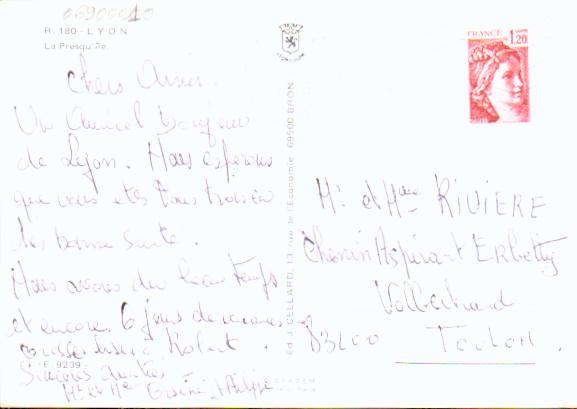 06900010
R. 180 - LYON
La Presqu'île.
Chers Amis.
Un Amical Bonjour
de Lyon. Nous espérons
que vous etes tous trois en
très bonne santé.
Nous avons du beau temps
et encore 6 jours de vacances
Robert.
Sincères Amitiés
Mr et Me
E. 9239
Ed. J. CELLARD, 13, rue de l'Economie 69500 BRON
FRANCE
1,20
Mr et Mme RIVIERE
Chemin Aspirant
Valbertrand
83200 Toulon